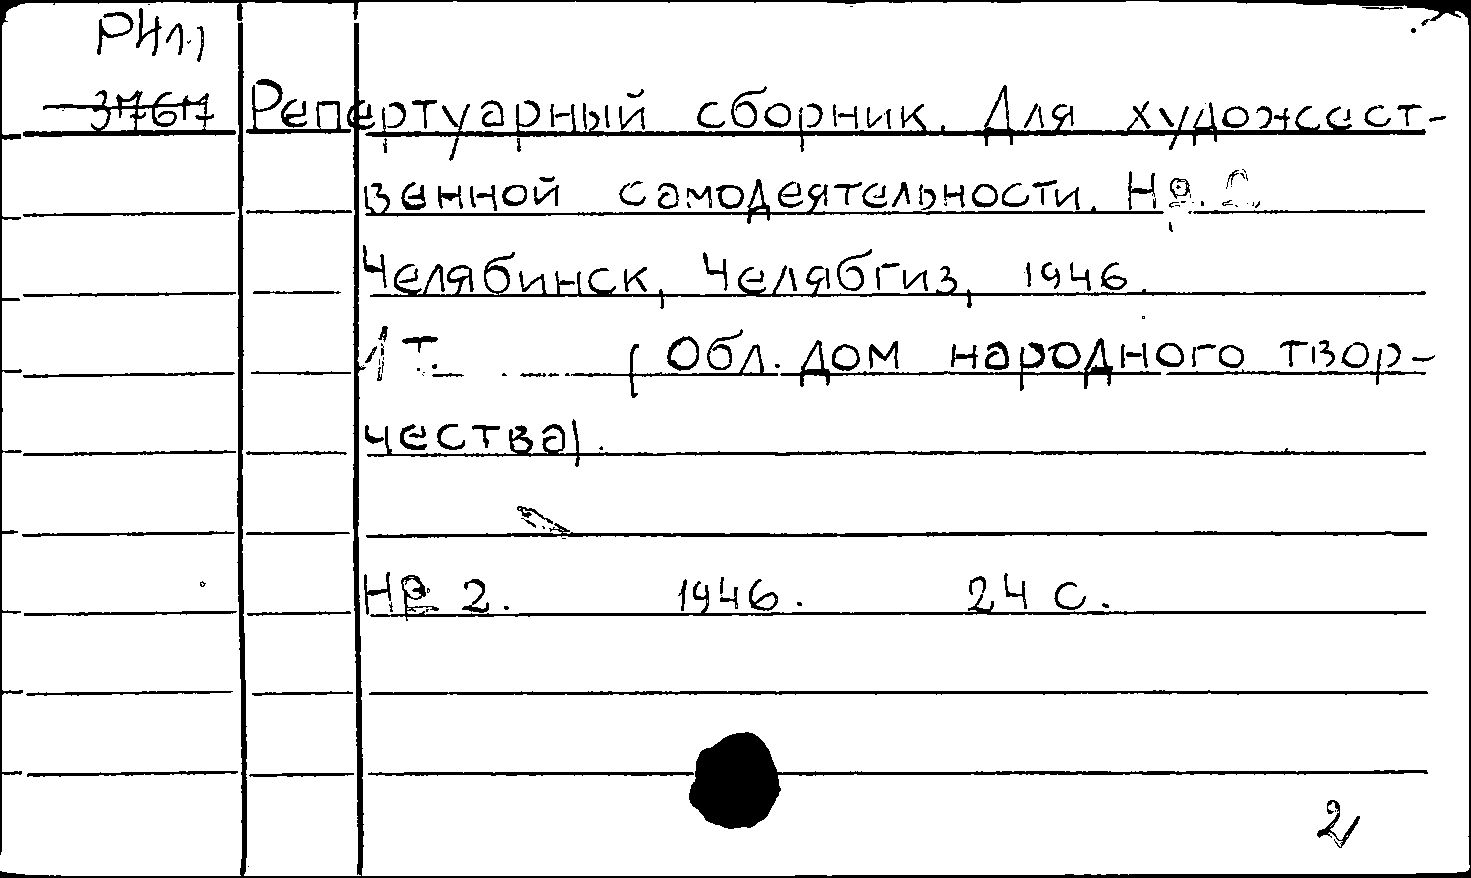 Репертуарный сборник. Для художест-
венной самодеятельности.
Челябинск, Челябгиз, 1946.
1 т. (Обл. дом народного твор-
чества).
№ 2. 1946. 24 с.
2